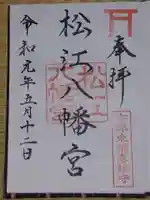 奉拝
松江八幡宮
令和元年五月十二日